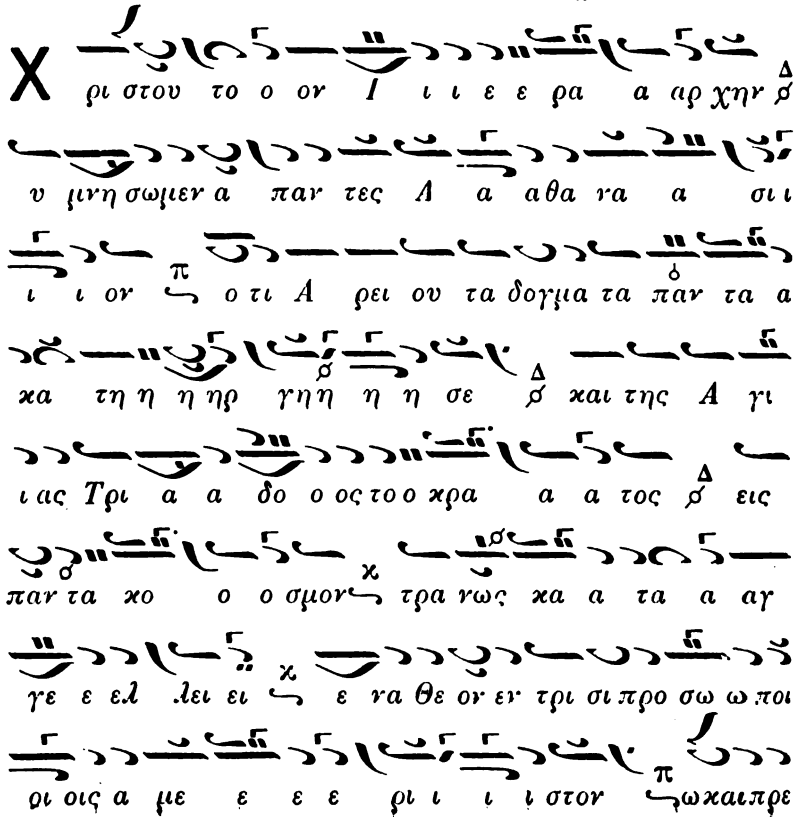 Χ ρι στου το ο ον Ι ι ι ε ε ρα α αρ χην Δ
υ μνη σωμεν α παν τες Α α αθα να α σι ι
ι ι ον π ο τι Α ρει ου τα δογμα τα παν τα α
κα τη η η ηρ γη η η η σε Δ και της Α γι
ι ας Τρι α α δο ο ος το ο κρα α α τος Δ εις
παν τα κο ο ο σμον κ τρα νως κα α τα α αγ
γε ε ελ λει ει κ ε να Θε ον εν τρι σι προ σω ω ποι
οι οις α με ε ε ε ρι ι ι ι στον π ω και πρε